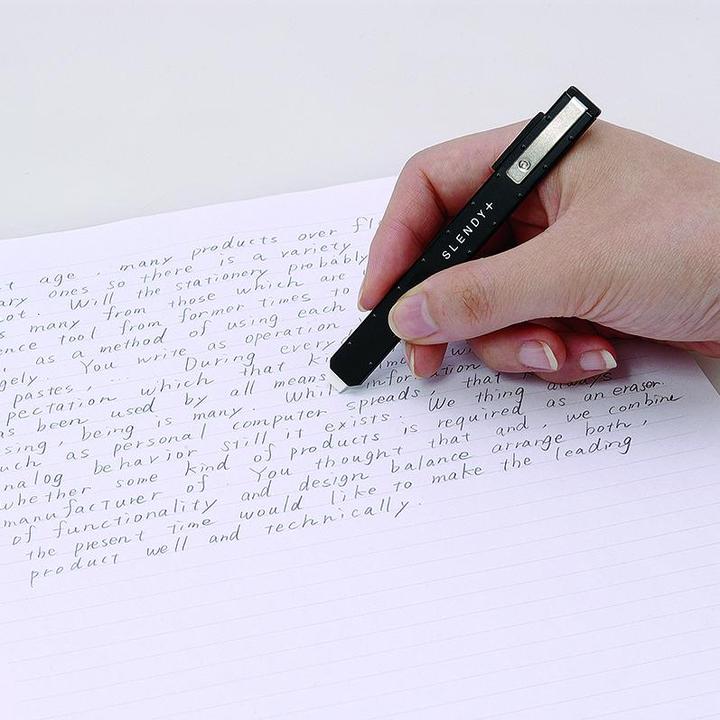 SLENDY+
t age, many products over fl
ary ones so there is a variety
ot. Will the stationery probably
s many from those which are
ence tool from former times to
, as a method of using each
gely. You write as operation
pastes, ... During every
pectation which that ki
as been used by all means
sing, being is many. Whil information
uch as personal computer spreads, that always
nalog behavior still it exists. We thing as an eraser.
whether some kind of products is required
manufacturer of You thought that and, we combine
of functionality and design balance arrange both,
the present time would like to make the leading
product well and technically.